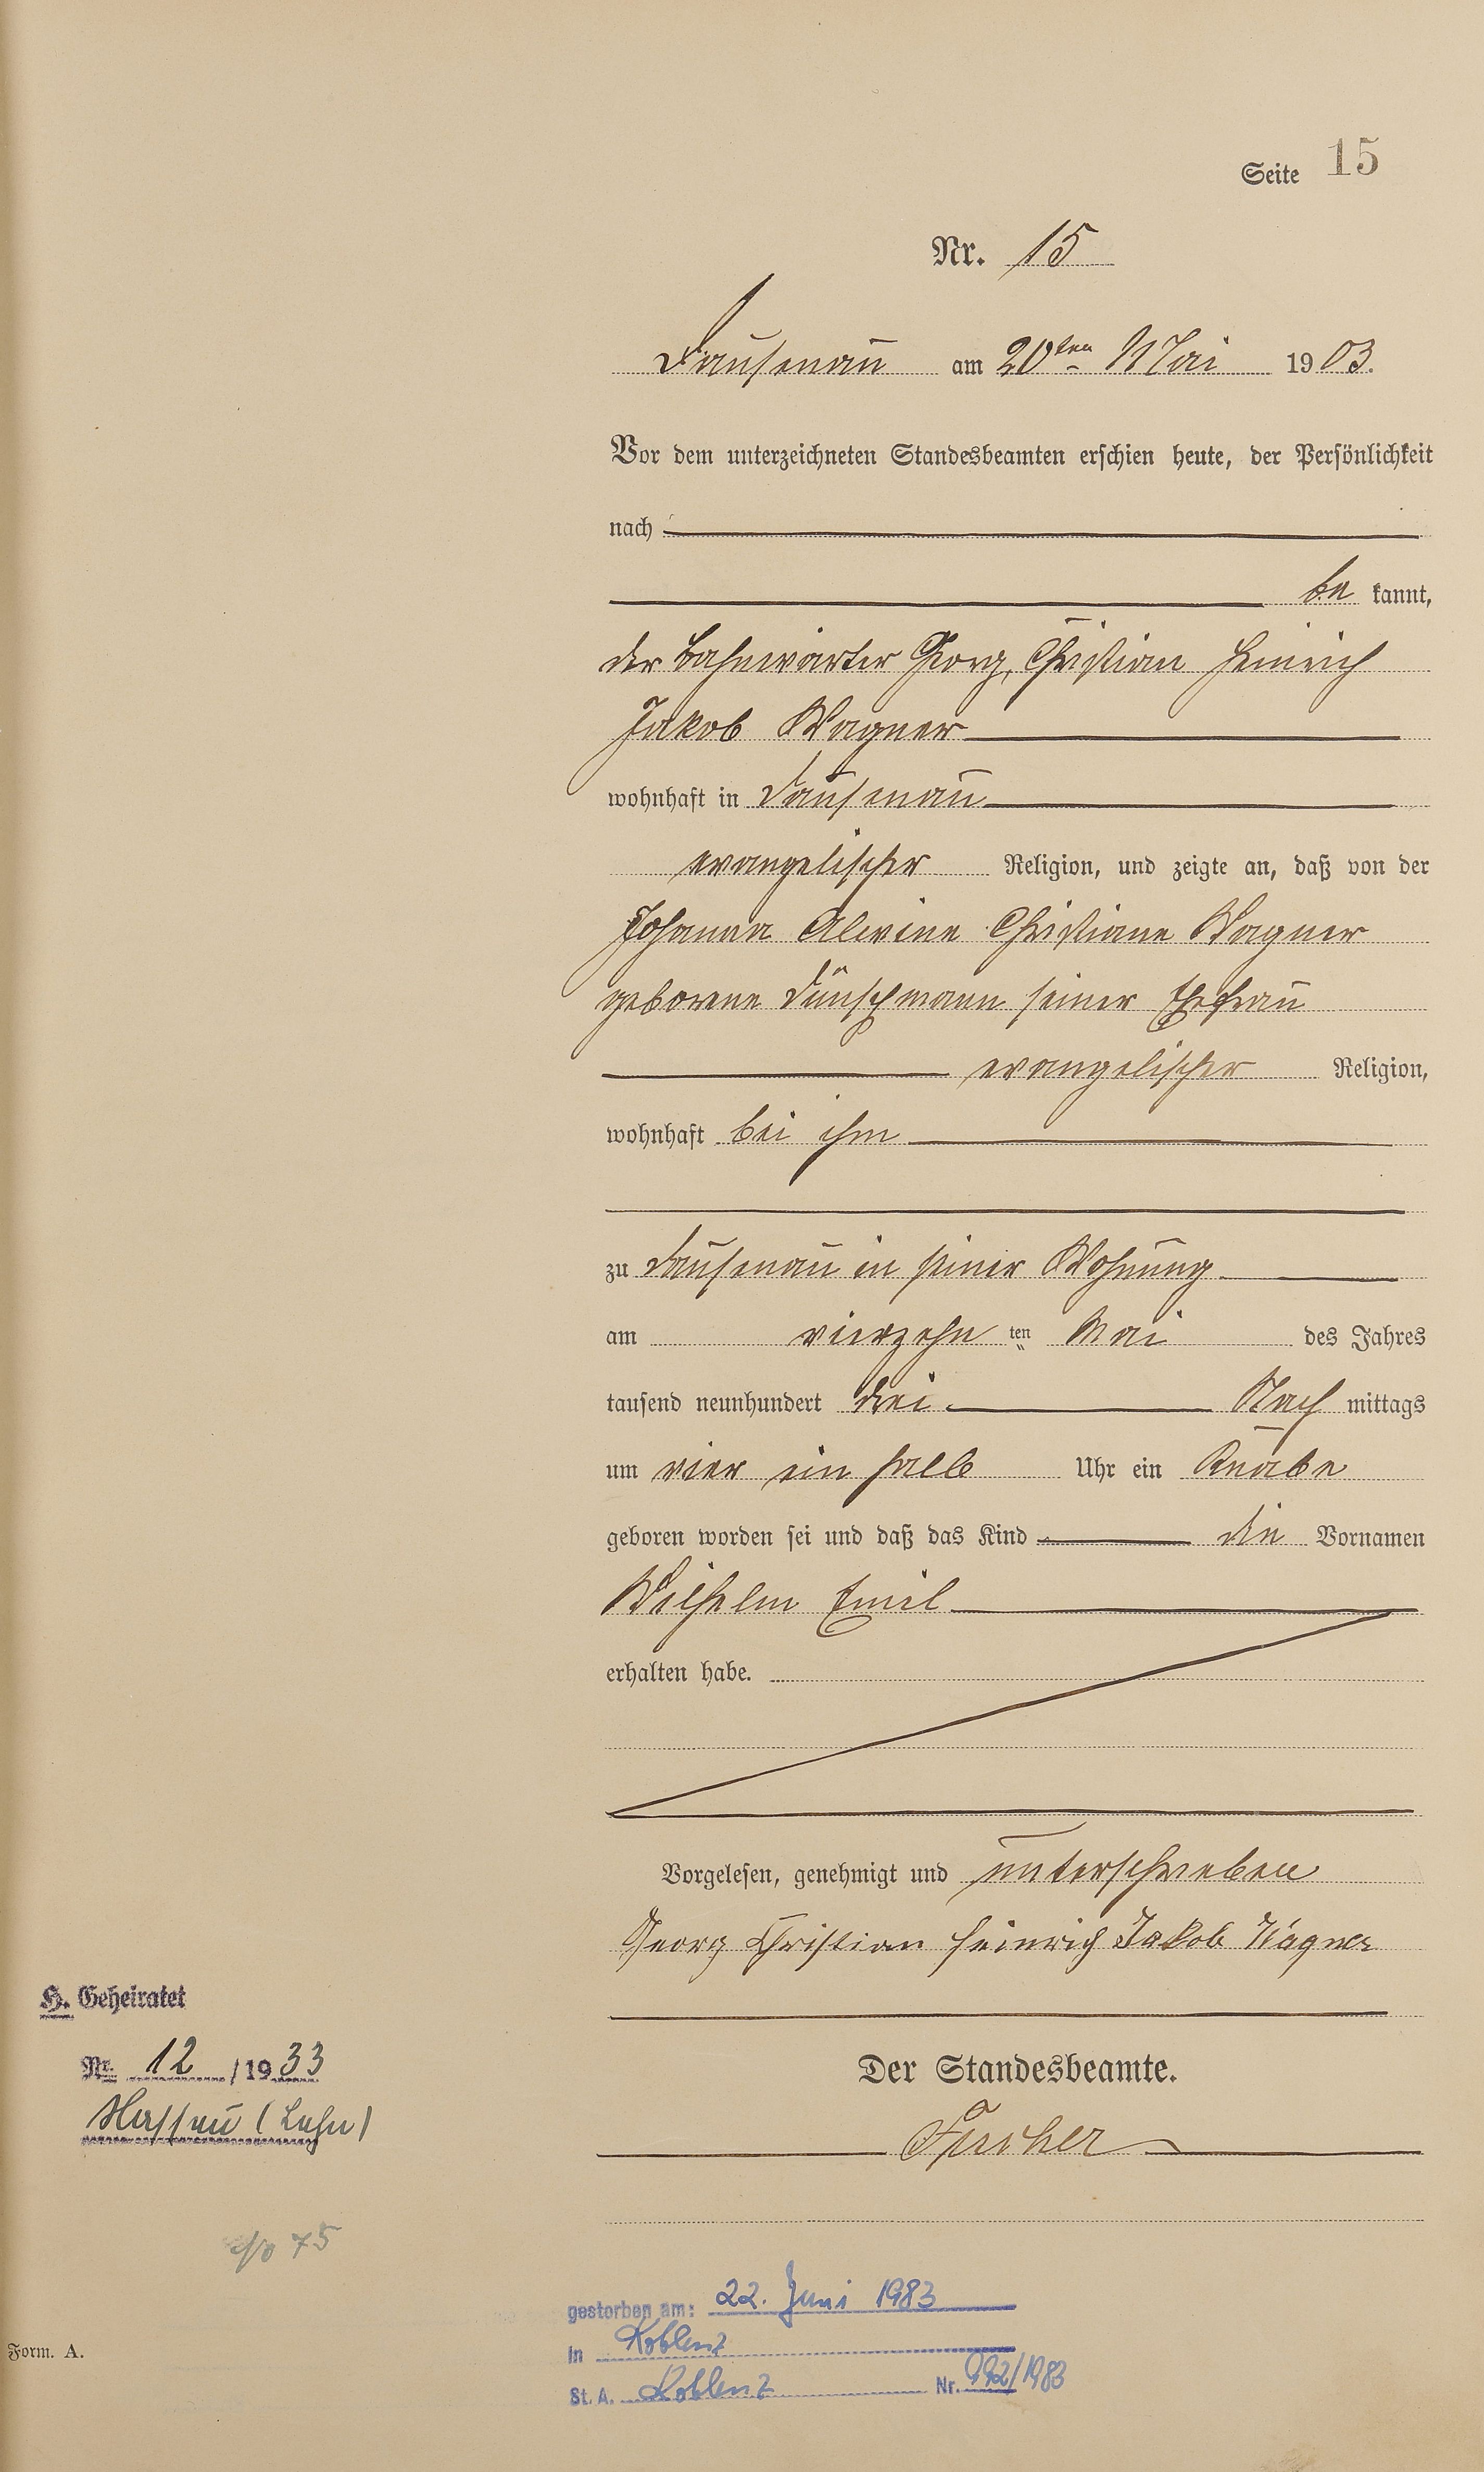 Seite 15
Nr. 15
Dausenau am 20ten Mai 1903.
Vor dem unterzeichneten Standesbeamten erschien heute, der Persönlichkeit
nach
be kannt,
der Bahnwärter Georg, Christian Heinrich
Jakob Wagner
wohnhaft in Dausenau
evangelischer Religion, und zeigte an, daß von der
Johanna Alwine Christiane Wagner
geborene Dünschmann seiner Ehefrau
evangelischer Religion,
wohnhaft bei ihm
zu Dausenau in seiner Wohnung
am vierzehn ten Mai des Jahres
tausend neunhundert drei Nach mittags
um vier ein halb Uhr ein Knabe
geboren worden sei und daß das Kind die Vornamen
Wilhelm Emil
erhalten habe.
Vorgelesen, genehmigt und unterschrieben
Georg Christian Heinrich Jakob Wagner
Der Standesbeamte.
H. Geheiratet
Nr. 12 /1933
Nassau (Lahn)
75
gestorben am: 22. Juni 1983
in Koblenz
St. A. Koblenz Nr. 992/1983
Form. A.